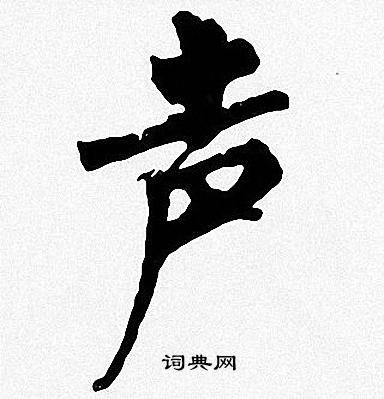 声
词典网